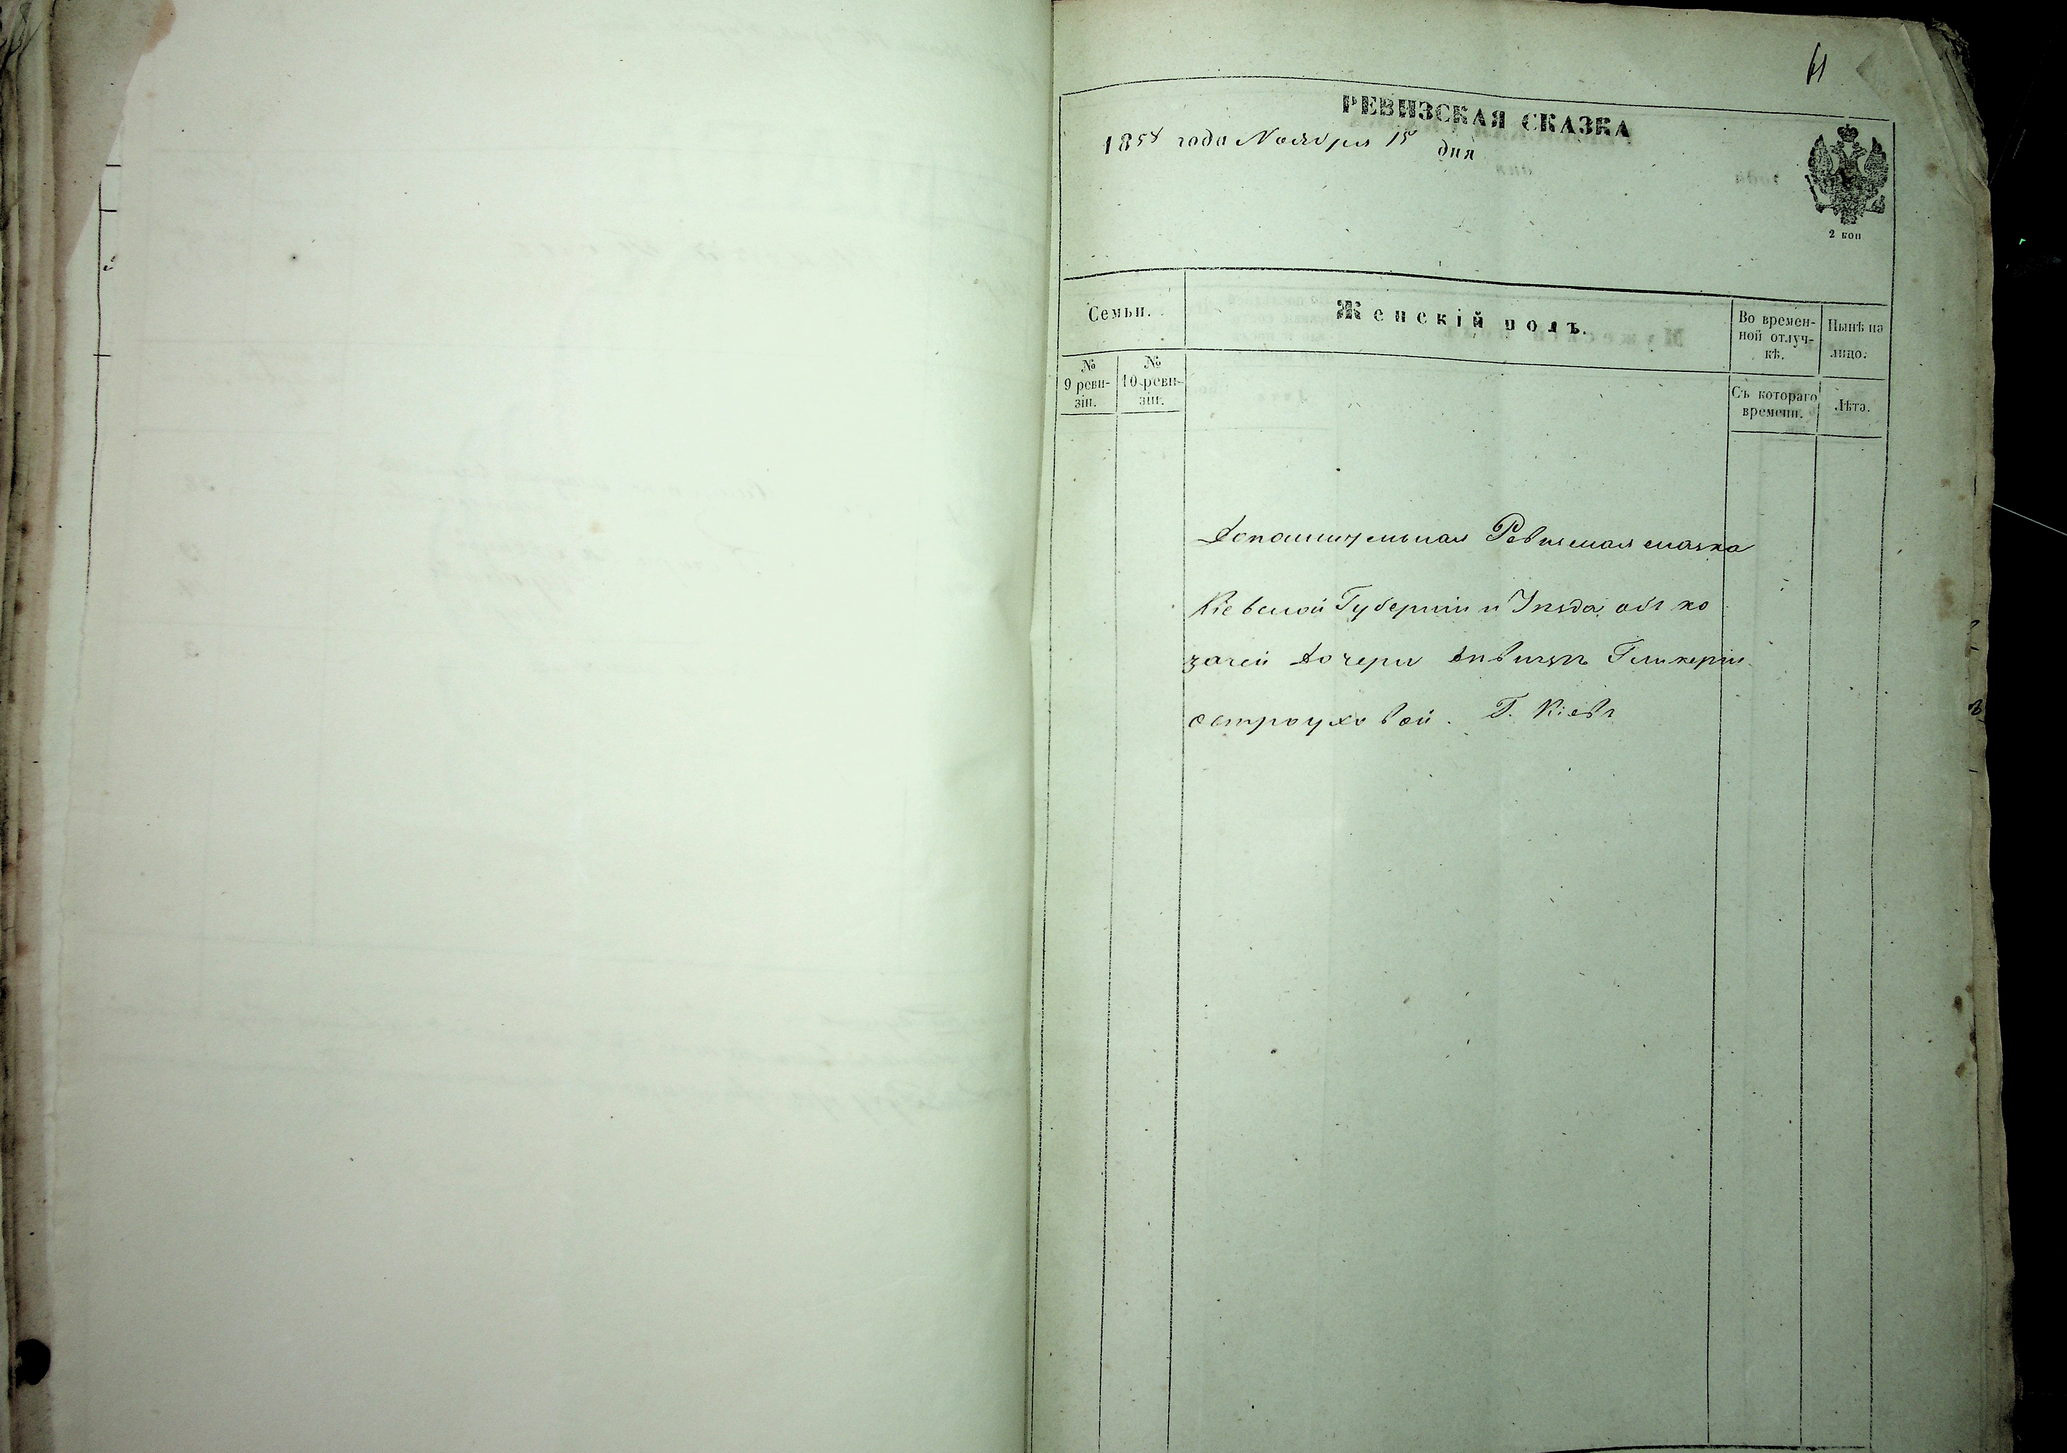 61
РЕВИЗСКАЯ СКАЗКА
1858 года Ноября 15 дня
2 коп
Семьи.
Женскій полъ.
Во времен-
ной отлуч-
кѣ.
Нынѣ на
лицо.
№
9 реви-
зіи.
№
10 реви-
зіи.
Съ котораго
времени.
Лѣта.
Дополнительная Ревизская сказка
Кіевской Губерніи и Уѣзда объ ко
зачей дочери дѣвицѣ Гликеріи
Остроуховой. Г. Кіевъ